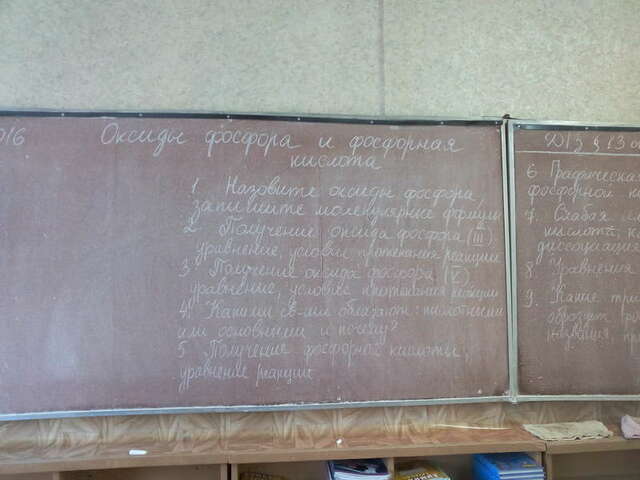 016
Оксиды фосфора и фосфорная
кислота
1. Назовите оксиды фосфора,
запишите молекулярные формулы
2. Получение оксида фосфора (III):
уравнение, условия протекания реакции
3. Получение оксида фосфора (V)
уравнение, условие протекания реакции
4. Какими св-ми обладают: кислотными
или основными и почему?
5. Получение фосфорной кислоты,
уравнение реакции
§ 13
6. Графическая
фосфорной
7. Слабая
кислота,
диссоциации
8. Уравнения
9. Какие три
образует
названия,